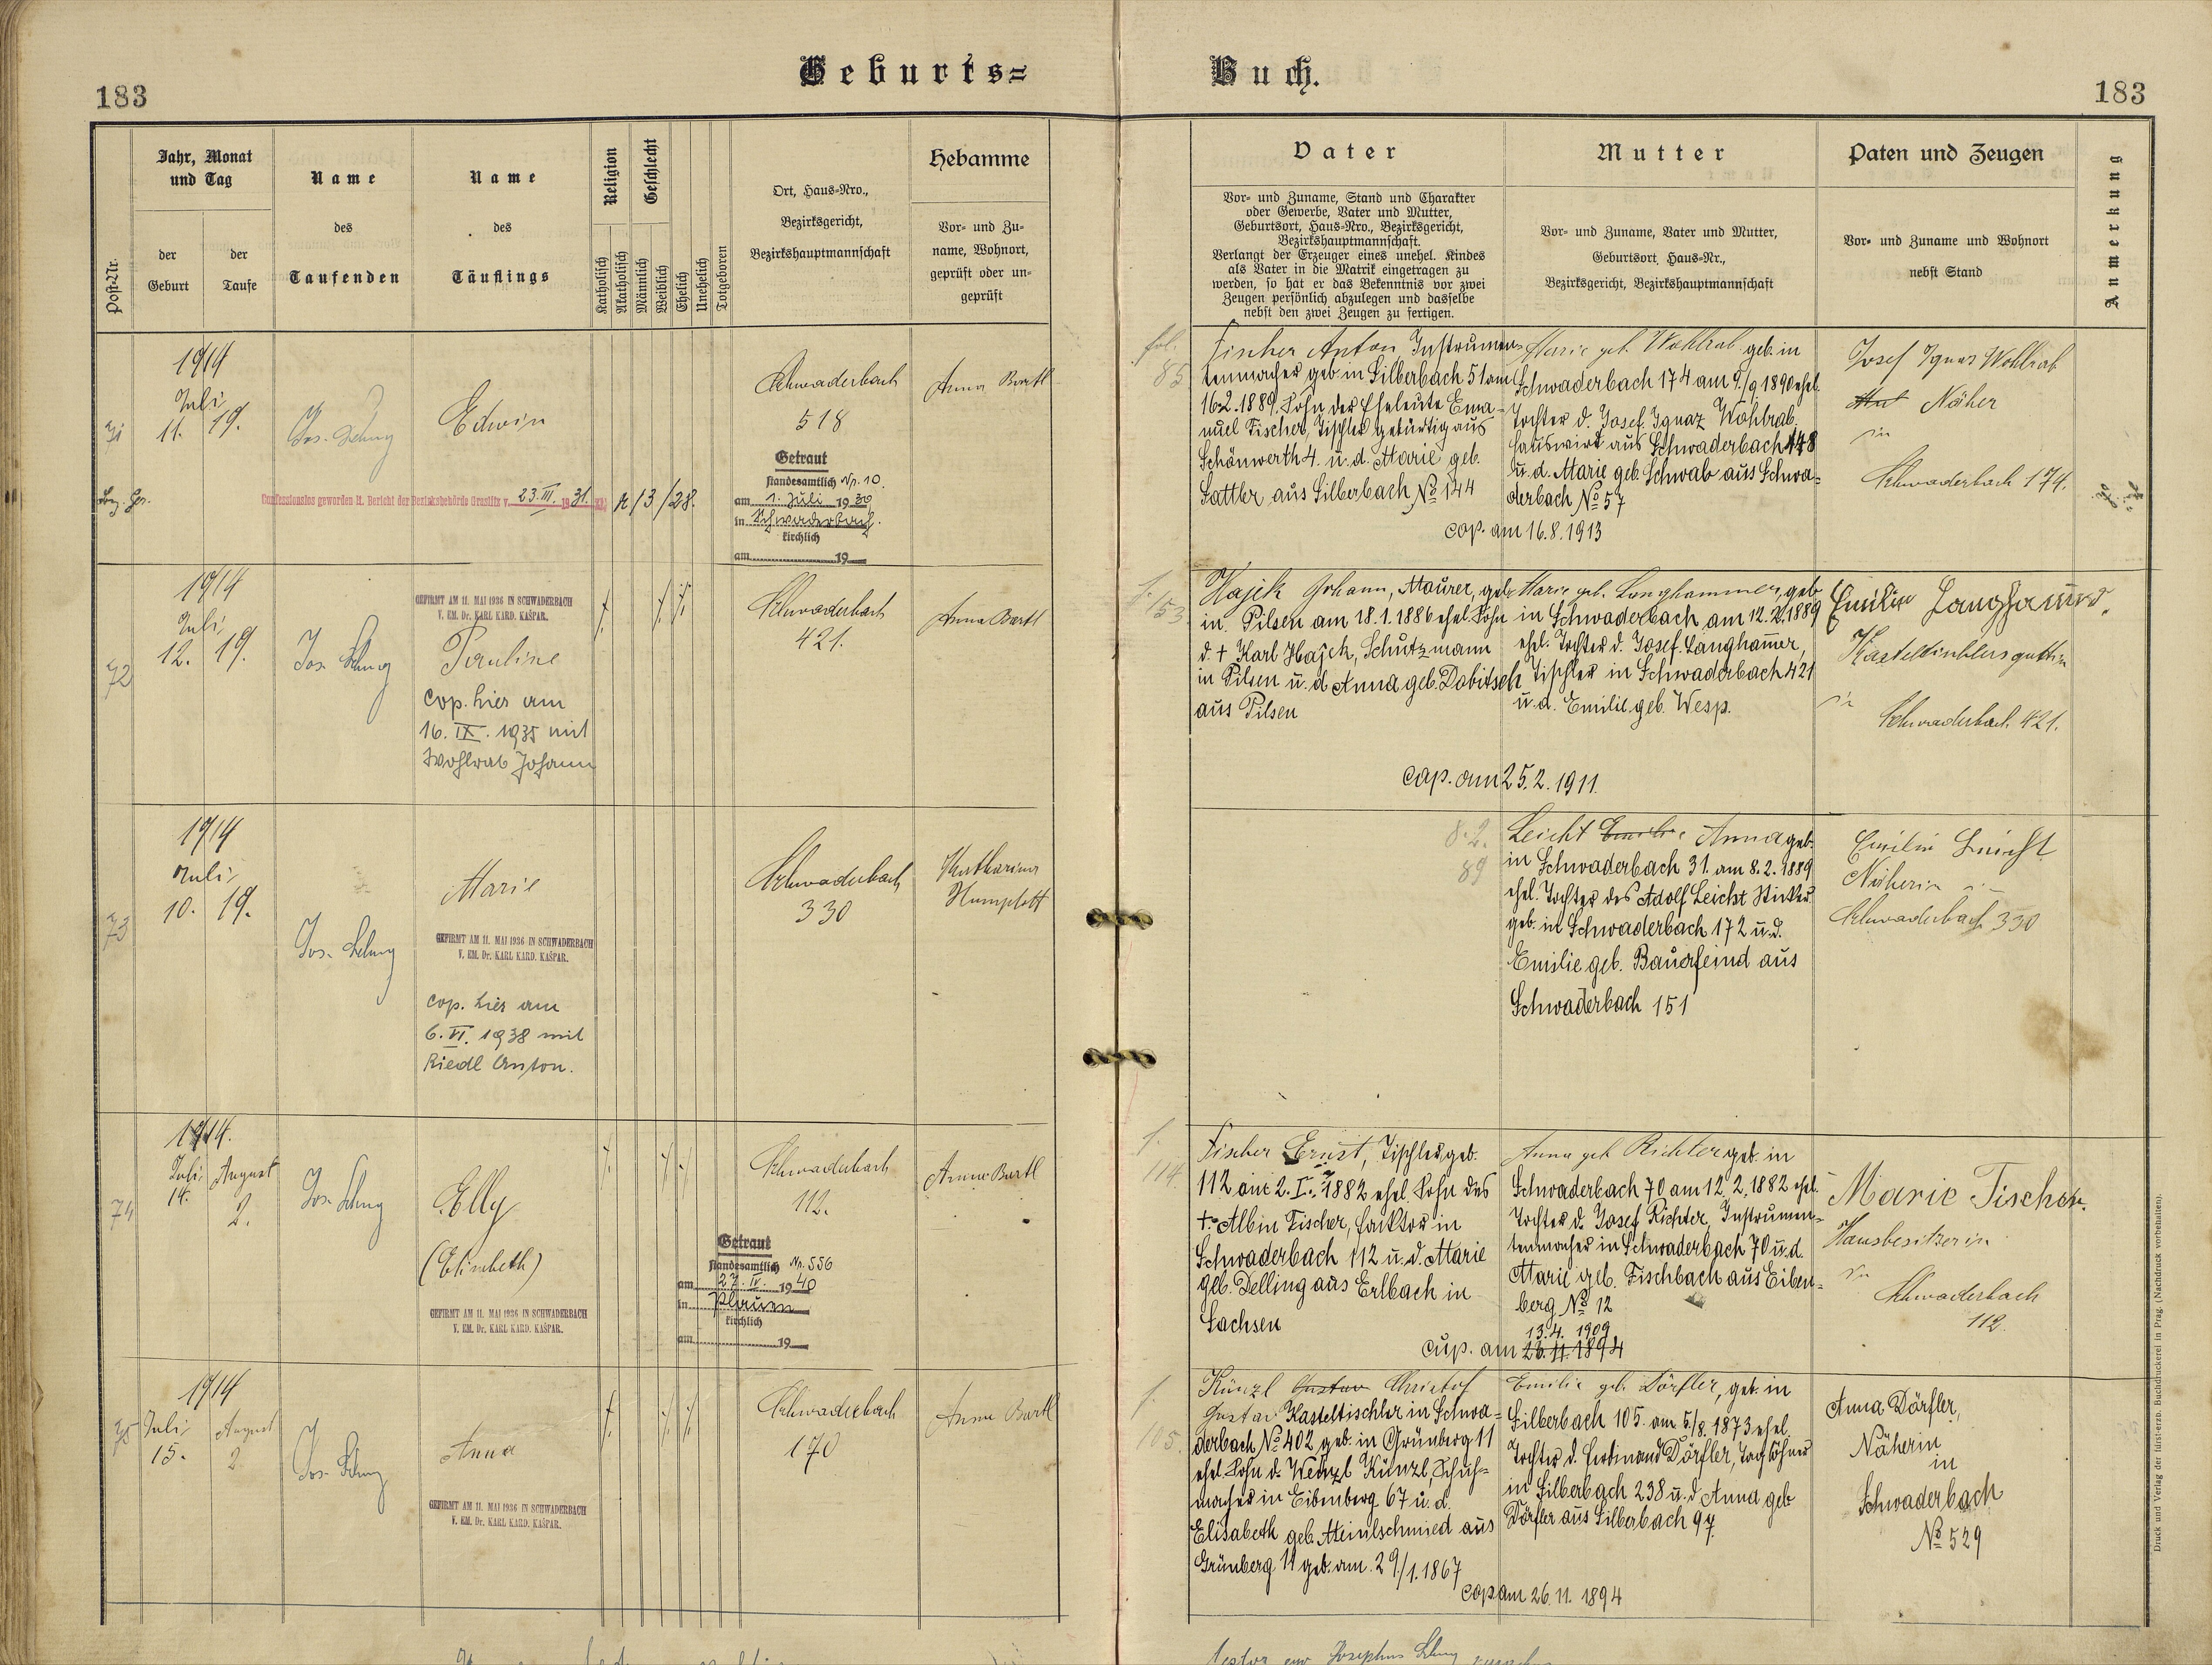 183
Geburts=
Buch.
183
Post-Nr.
Jahr, Monat
und Tag
der
Geburt
der
Taufe
Name
des
Taufenden
Name
des
Täuflings
Religion
Katholisch
Akatholisch
Geschlecht
Männlich
Weiblich
Ehelich
Unehelich
Totgeboren
Ort, Haus=Nro.,
Bezirksgericht,
Bezirkshauptmannschaft
Hebamme
Vor= und Zu=
name, Wohnort,
geprüft oder un=
geprüft
Vater
Vor= und Zuname, Stand und Charakter
oder Gewerbe, Vater und Mutter,
Geburtsort, Haus=Nro., Bezirksgericht,
Bezirkshauptmannschaft.
Verlangt der Erzeuger eines unehel. Kindes
als Vater in die Matrik eingetragen zu
werden, so hat er das Bekenntnis vor zwei
Zeugen persönlich abzulegen und dasselbe
nebst den zwei Zeugen zu fertigen.
Mutter
Vor= und Zuname, Vater und Mutter,
Geburtsort, Haus=Nr.,
Bezirksgericht, Bezirkshauptmannschaft
Paten und Zeugen
Vor= und Zuname und Wohnort
nebst Stand
Anmerkung
71
1914
Juli
11. 19.
Edwin
Konfessionslos geworden lt. Bericht der Bezirksbehörde Graslitz v. 23.III. 1931.
Schwaderbach
518
Getraut
standesamtlich Nr. 10.
am 1. Juli 1939
in Schwaderbach.
kirchlich
am 19
Anna Bartl
fol.
85
Fischer Anton, Instrumen=
tenmacher geb. in Silberbach 51 am
16.2.1889. Sohn der Eheleute Ema=
nuel Fischer, Tischler gebürtig aus
Schönwerth 4. u. d. Marie geb.
Sattler aus Silberbach No 144
Marie geb. Wohlrab geb. in
Schwaderbach 174 am 9./9 1890 ehel.
Tochter d. Josef Ignaz Wohlrab.
Hauswirt aus Schwaderbach 148
u. d. Marie geb. Schwab aus Schwa=
derbach No 57
cop. am 16.8.1913
Josef Ignaz Wohlrab
Näher
in
Schwaderbach 174.
72
1914
Juli
12. 19.
GEFIRMT AM 11. MAI 1936 IN SCHWADERBACH
V. EM. Dr. KARL KARD. KAŠPAR.
Pauline
cop. hier am
16. IX. 1935 mit
Wohlrab Johann
Schwaderbach
421.
Anna Bartl
f.
153
Hajek Johann, Maurer, geb.
in Pilsen am 18.1.1886 ehel. Sohn
d. † Karl Hajek, Schutzmann
in Pilsen u. d. Anna geb. Dobitsch
aus Pilsen
Marie geb. Langhammer, geb.
in Schwaderbach am 12.2.1889
ehel. Tochter d. Josef Langham̄er,
Tischler in Schwaderbach 421
u. d. Emilie geb. Wesp.
cop. am 25.2.1911.
Kasteltischlersgattin
in
Schwaderbach 421.
73
1914
Juli
10. 19.
Marie
GEFIRMT AM 11. MAI 1936 IN SCHWADERBACH
V. EM. Dr. KARL KARD. KAŠPAR.
cop. hier am
6. VI. 1938 mit
Riedl Anton.
Schwaderbach
330
Katharina
8.2.
89
Leicht Emilie Anna geb.
in Schwaderbach 31. am 8.2.1889
ehel. Tochter des Adolf Leicht Sticker
geb. in Schwaderbach 172 u. d.
Emilie geb. Bauerfeind aus
Schwaderbach 151
Emilie Leicht
Näherin in
Schwaderbach 330
74
1914.
Juli August
14. 2.
Elly
(Elisabeth)
GEFIRMT AM 11. MAI 1936 IN SCHWADERBACH
V. EM. Dr. KARL KARD. KAŠPAR.
Schwaderbach
112.
Getraut
standesamtlich Nr. 556
am 27. IV. 1940
in Plauen
kirchlich
am 19
Anna Bartl
f.
114.
Fischer Ernst, Tischler geb.
112 am 2. I. 1882 ehel. Sohn des
†. Albin Fischer, Faktor in
Schwaderbach 112 u. d. Marie
geb. Delling aus Erlbach in
Sachsen
Anna geb. Richter geb. in
Schwaderbach 70 am 12.2.1882 ehel.
Tochter d. Josef Richter, Instrumen=
tenmacher in Schwaderbach 70 u. d.
Marie geb. Fischbach aus Eiben=
berg No 12
13.4. 1909
cop. am 26.11.1894
Marie Fischer.
Hausbesitzerin
in
Schwaderbach
112.
75
1914
Juli August
15. 2
Anna
GEFIRMT AM 11. MAI 1936 IN SCHWADERBACH
V. EM. Dr. KARL KARD. KAŠPAR.
Schwaderbach
170
Anna Bartl
f.
105.
Künzl Gustav Christof
Gustav Kasteltischler in Schwa=
derbach No 402 geb. in Grünberg 11
ehel. Sohn d. Wenzl Künzl, Schuh=
macher in Eibenberg 67 u. d.
Elisabeth geb. Meinlschmied aus
Grünberg 11 geb. am 29./1.1867
Emilie geb. Dörfler, geb. in
Silberbach 105. am 5./8. 1873 ehel.
Tochter d. Ferdinand Dörfler, Taglöhner
in Silberbach 238 u. d. Anna geb.
Dörfler aus Silberbach 97
cop. am 26.11.1894
Anna Dörfler,
Näherin
in
Schwaderbach
No 529
Druck und Verlag der fürst-erzb. Buchdruckerei in Prag. (Nachdruck vorbehalten).